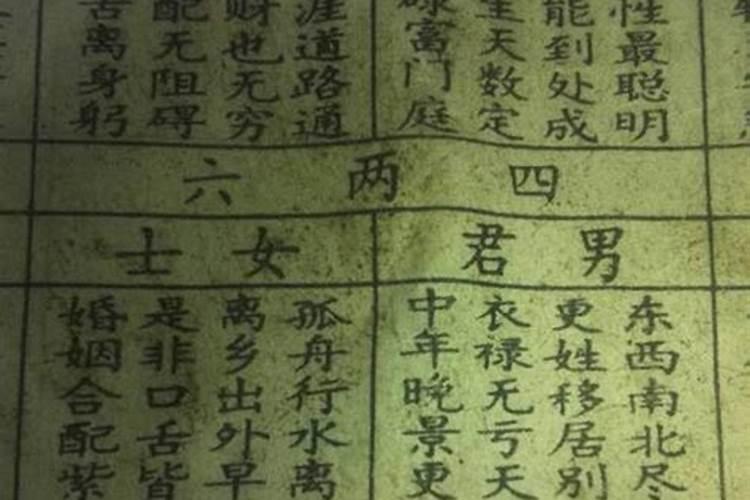 性最聪明
能到处成
天数定
禄富门庭
涯道路通
财也无穷
配无阻碍
苦离身躬
四两六
男君
女士
东西南北尽
更姓移居别
衣禄无亏天
中年晚景更
孤舟行水离
离乡出外早
是非口舌皆
婚姻合配紫